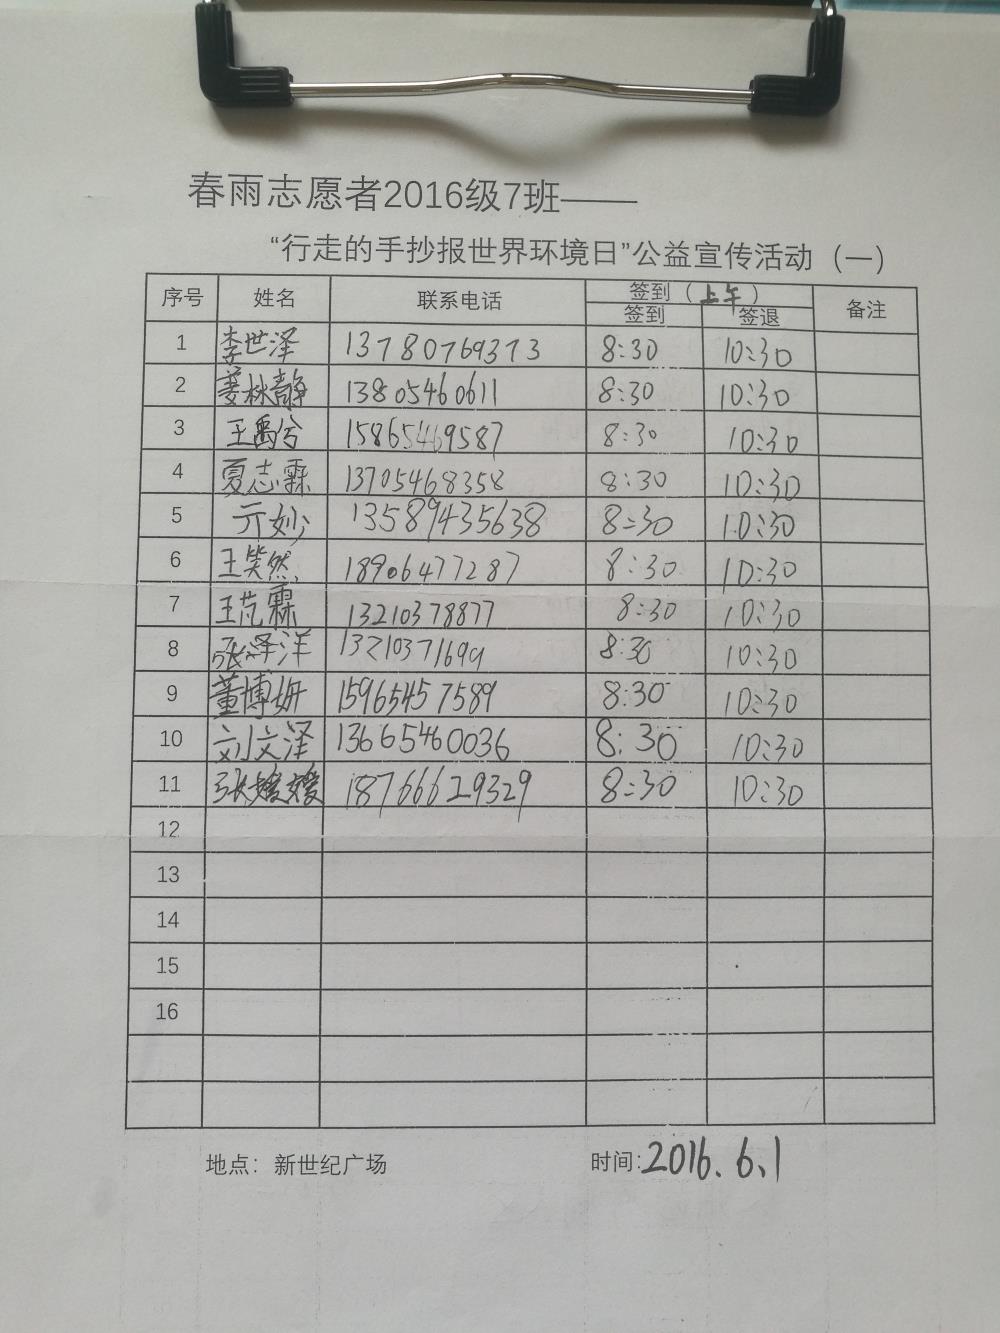 春雨志愿者2016级7班——
“行走的手抄报世界环境日”公益宣传活动（一）
序号 姓名 联系电话 签到（上午） 备注
签到 签退
1 李世泽 13780769373 8:30 10:30
2 姜林静 13805460611 8:30 10:30
3 王禹兮 15865469587 8:30 10:30
4 夏志霖 13705468358 8:30 10:30
5 亓妙 13589435638 8:30 10:30
6 王笑然 18906477287 8:30 10:30
7 王范霖 13210378877 8:30 10:30
8 张泽洋 13210371699 8:30 10:30
9 董博妍 15965457589 8:30 10:30
10 刘文泽 13665460036 8:30 10:30
11 张媛媛 18766629329 8:30 10:30
12
13
14
15
16
地点：新世纪广场 时间:2016.6.1